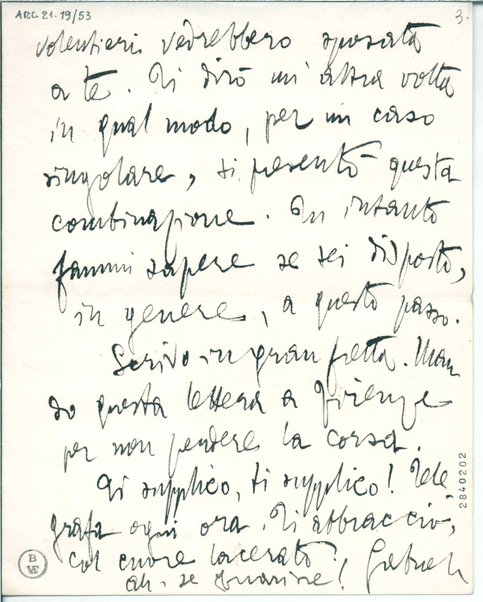 ARC. 21. 19/53
3.
volentieri vedrebbero sposata
a te. Ti dirò un'altra volta
in qual modo, per un caso
singolare, si presentò questa
combinazione. Tu intanto
fammi sapere se sei disposto,
in genere, a questo passo.
Scrivo in gran fretta. Man
do questa lettera a Firenze
per non perdere la corsa.
Ti supplico, ti supplico! Tele
grafa ogni ora. Ti abbraccio,
col cuore lacerato.
Ah, se guarisse! Gabriele
2840202
B
VE